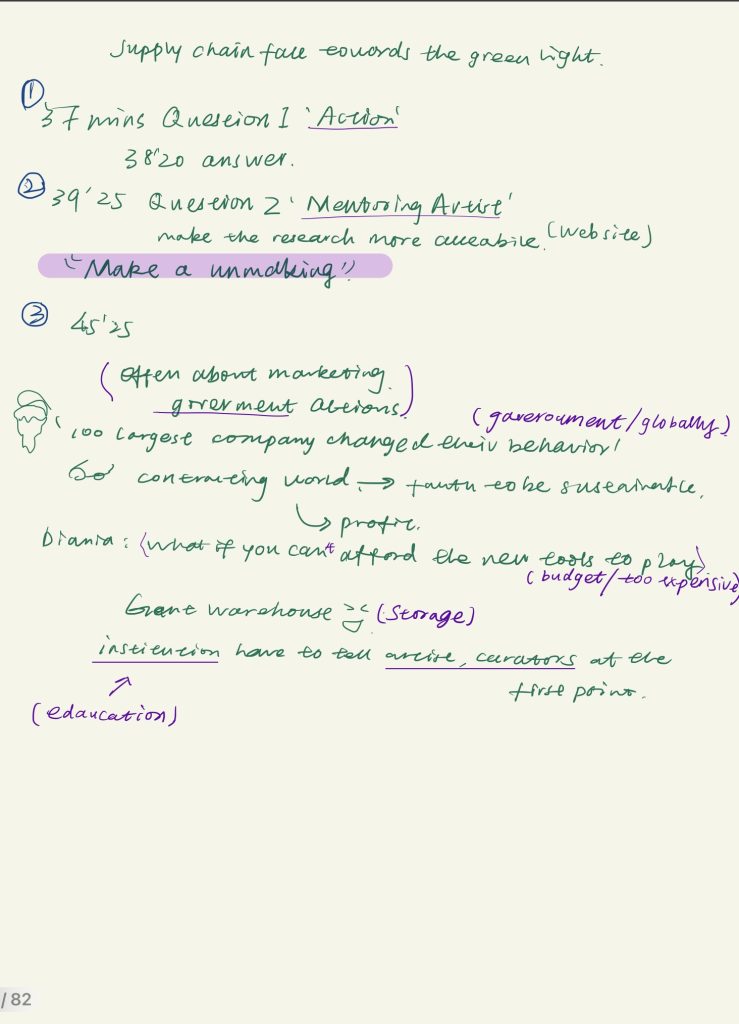 supply chain face towards the green light.
①
37 mins Question 1 'Action'
38'20 answer.
② 39'25 Question 2 'Mentoring Artist'
make the research more (website)
"Make a unmaking"
③ 45'25
(often about marketing.
goverment actions)
(goveroument/globally)
'100 largest company changed their behavior'
60' contracting world → to be sustainable.
↳ profit.
Diania: (what if you can't afford the new tools to play)
(budget/too expensive)
Giant warehouse (storage)
institution have to tell artist, curators at the
first point.
(edaucation)
/82